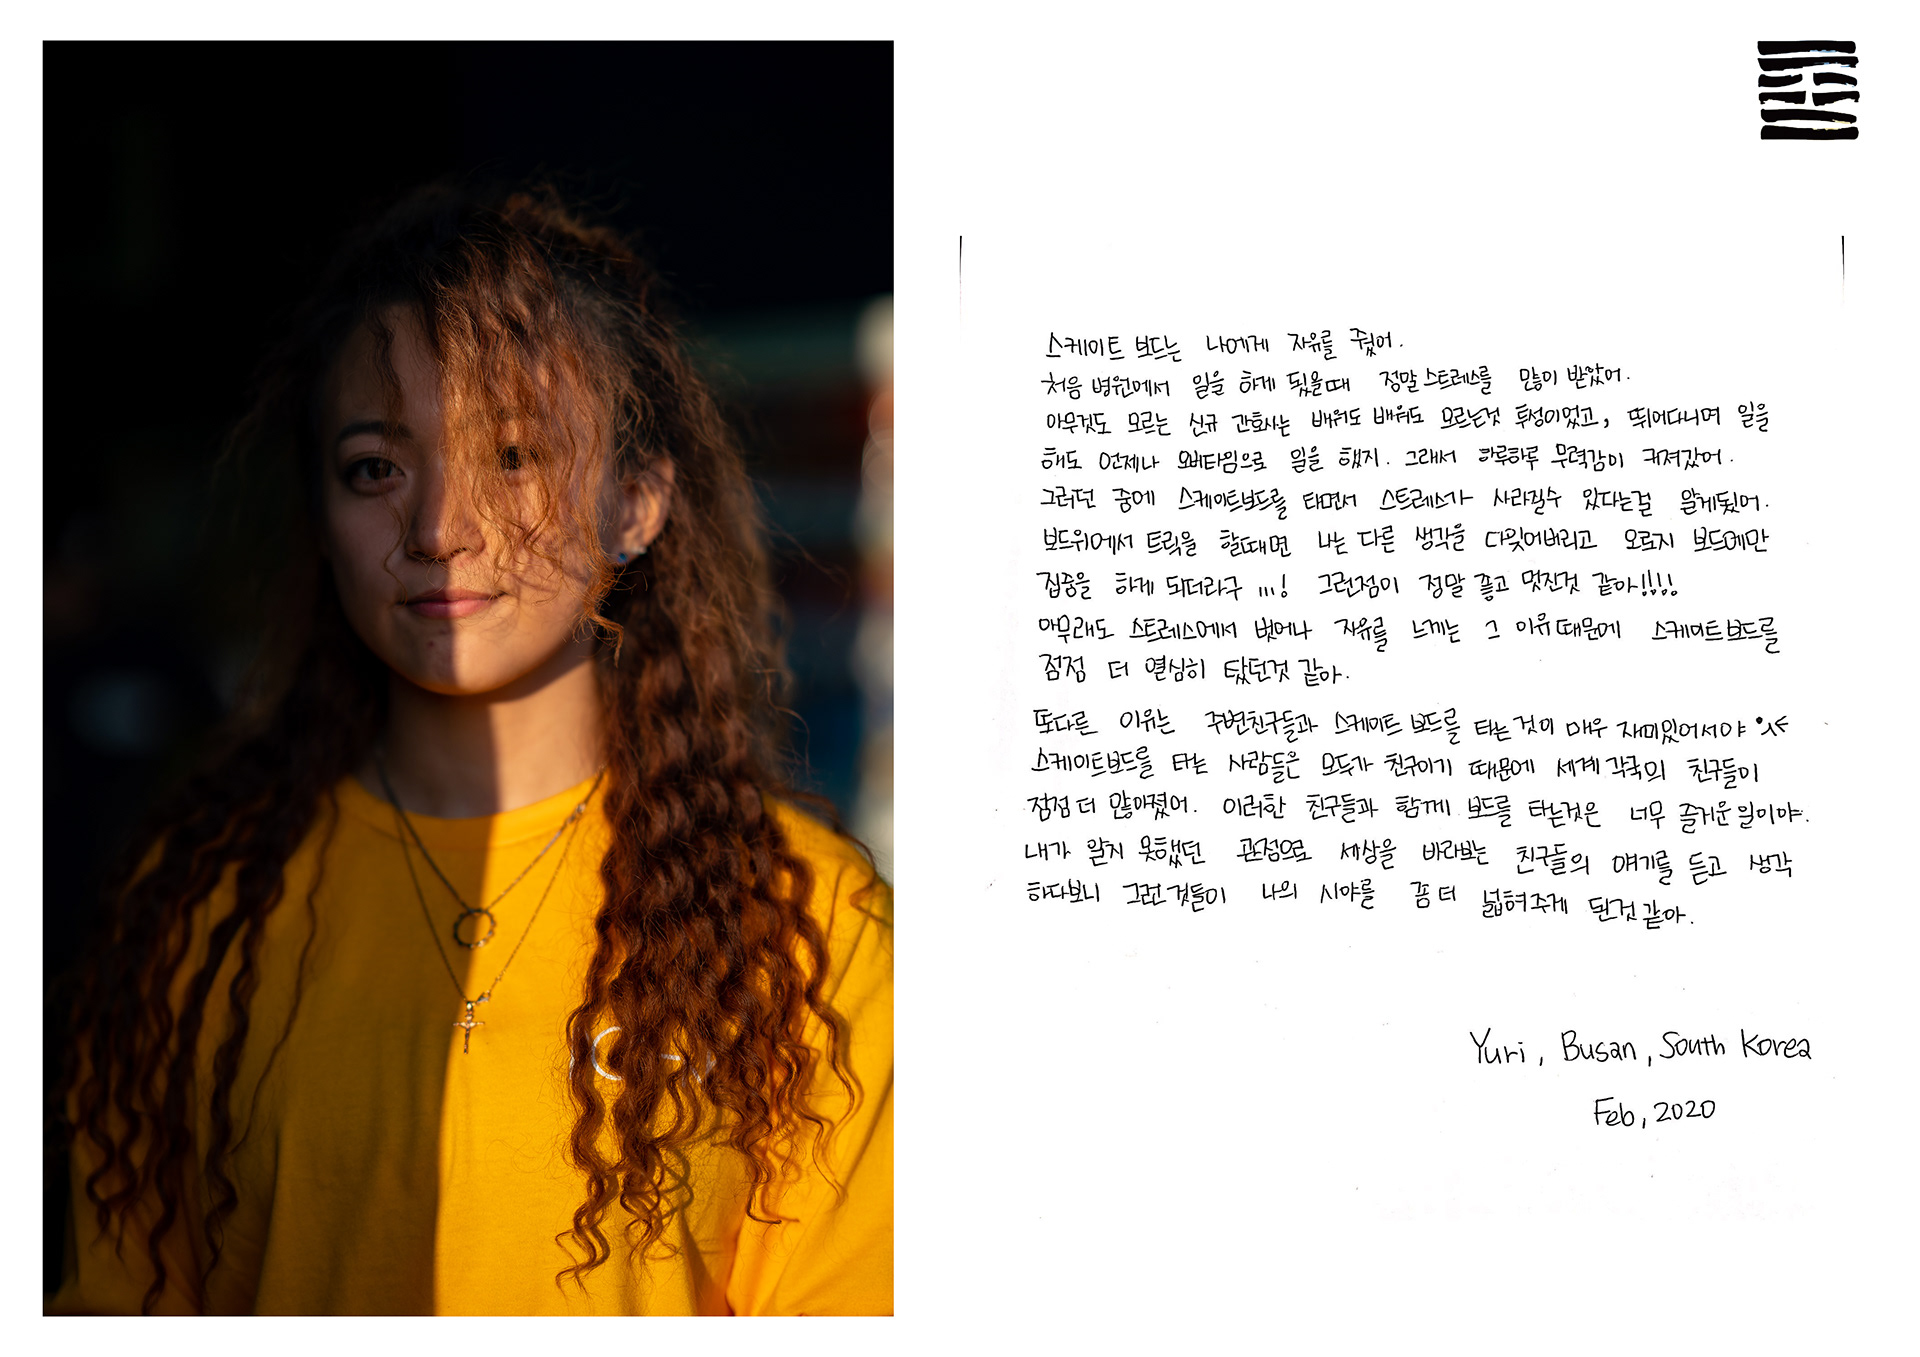 스케이트 보드는 나에게 자유를 줬어.
처음 병원에서 일을 하게 됐을때 정말 스트레스를 많이 받았어.
아무것도 모르는 신규 간호사는 배워도 배워도 모르는것 투성이었고, 뛰어다니며 일을
해도 언제나 오버타임으로 일을 했지. 그래서 하루하루 무력감이 커져갔어.
그러던 중에 스케이트보드를 타면서 스트레스가 사라질수 있다는걸 알게됐어.
보드위에서 트릭을 할때면 나는 다른 생각을 다잊어버리고 오로지 보드에만
집중을 하게 되더라구 ...! 그런점이 정말 좋고 멋진것 같아!!!!
아무래도 스트레스에서 벗어나 자유를 느끼는 그 이유때문에 스케이트보드를
점점 더 열심히 탔던것 같아.
또다른 이유는 주변친구들과 스케이트 보드를 타는것이 매우 재미있어서야
스케이트보드를 타는 사람들은 모두가 친구이기 때문에 세계각국의 친구들이
점점 더 많아졌어. 이러한 친구들과 함께 보드를 타는것은 너무 즐거운 일이야.
내가 알지 못했던 관점으로 세상을 바라보는 친구들의 얘기를 듣고 생각
하다보니 그런것들이 나의 시야를 좀 더 넓혀주게 된것 같아.
Yuri, Busan, South Korea
Feb, 2020